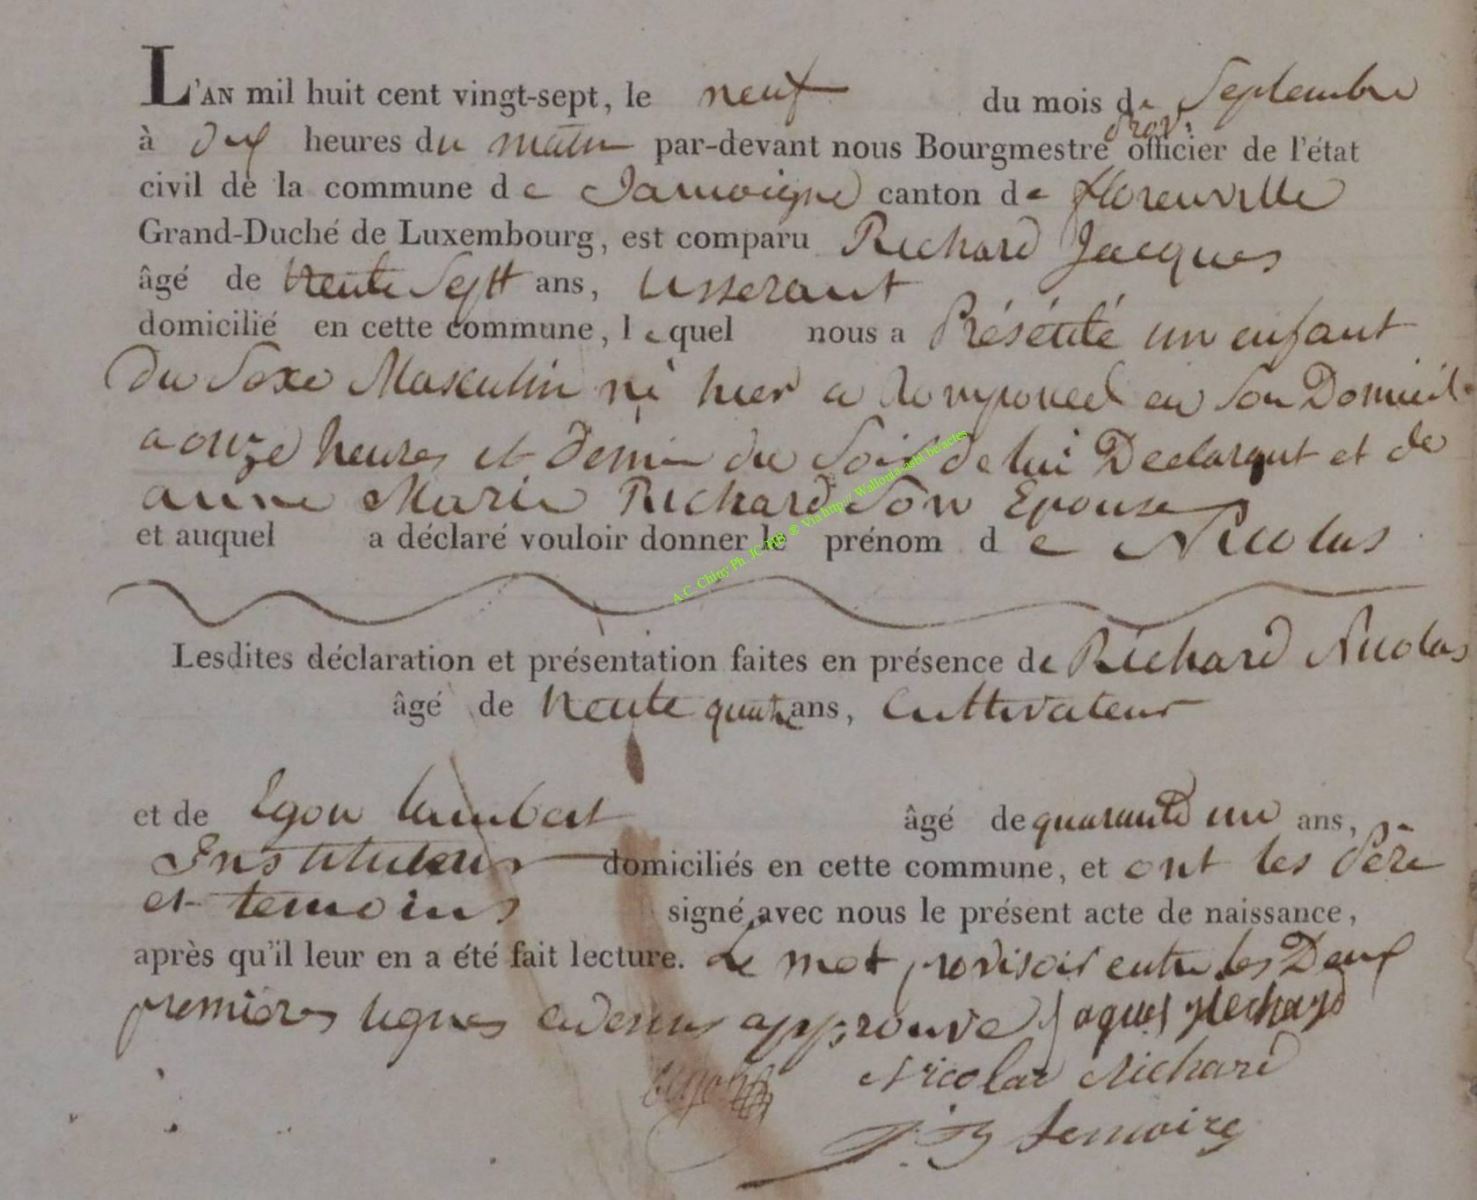 L'AN mil huit cent vingt-sept, le neuf du mois de Septembre
prov:
à dix heures du matin par-devant nous Bourgmestre officier de l'état
civil de la commune de Jamoigne canton de florenville
Grand-Duché de Luxembourg, est comparu Richard Jacques
âgé de trente Sept ans, tisserant
domicilié en cette commune, lequel nous a Présénté un enfant
du Sexe Masculin né hier a Romponcel en son Domicil
a onze heures et demi du Soir de lui Declarant et de
anne Marie Richard Son Epouse
et auquel a déclaré vouloir donner le prénom de Nicolas
A.C. Chiny Ph. JC HB ® Via http:// Wallonia-asbl.be/actes
Lesdites déclaration et présentation faites en présence de Richard Nicolas
âgé de trente quatre ans, Cultivateur
et de Egon lambert âgé de quarante un ans,
Instituteur domiciliés en cette commune, et ont les Père
et temoins signé avec nous le présent acte de naissance,
après qu'il leur en a été fait lecture. Le mot provisoir entre les Deux
premières lignes cidessus approuvé Jaques Richard
Nicolas Richard
Lemoine